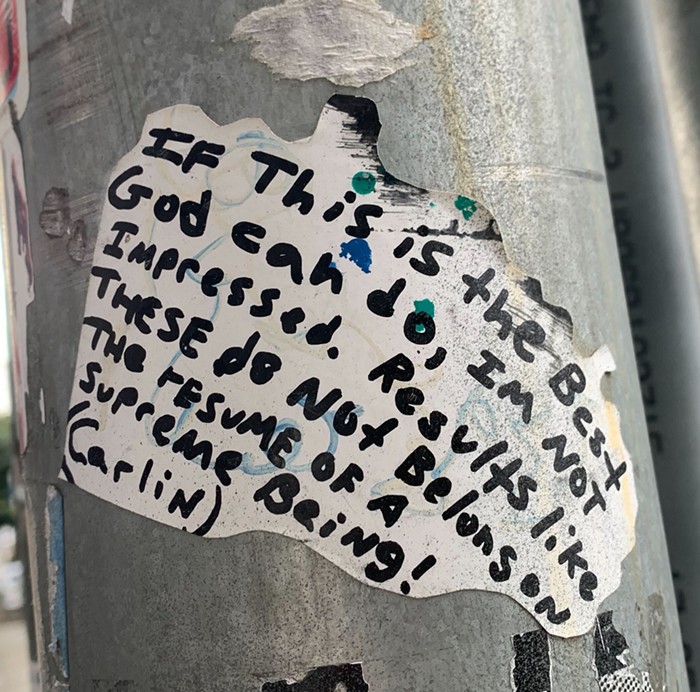 IF This is the Best
God can do, Im NOT
Impressed. Results like
THESE do NOt Belong on
THe resume OF A
supreme Being!
(CarliN)